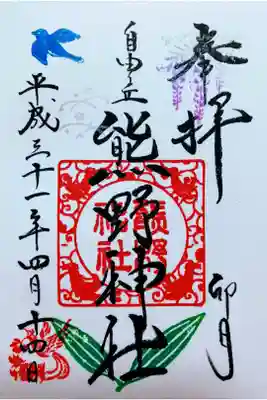 奉拝
卯月
自由が丘
熊野神社
熊野神社
平成三十一年四月十四日